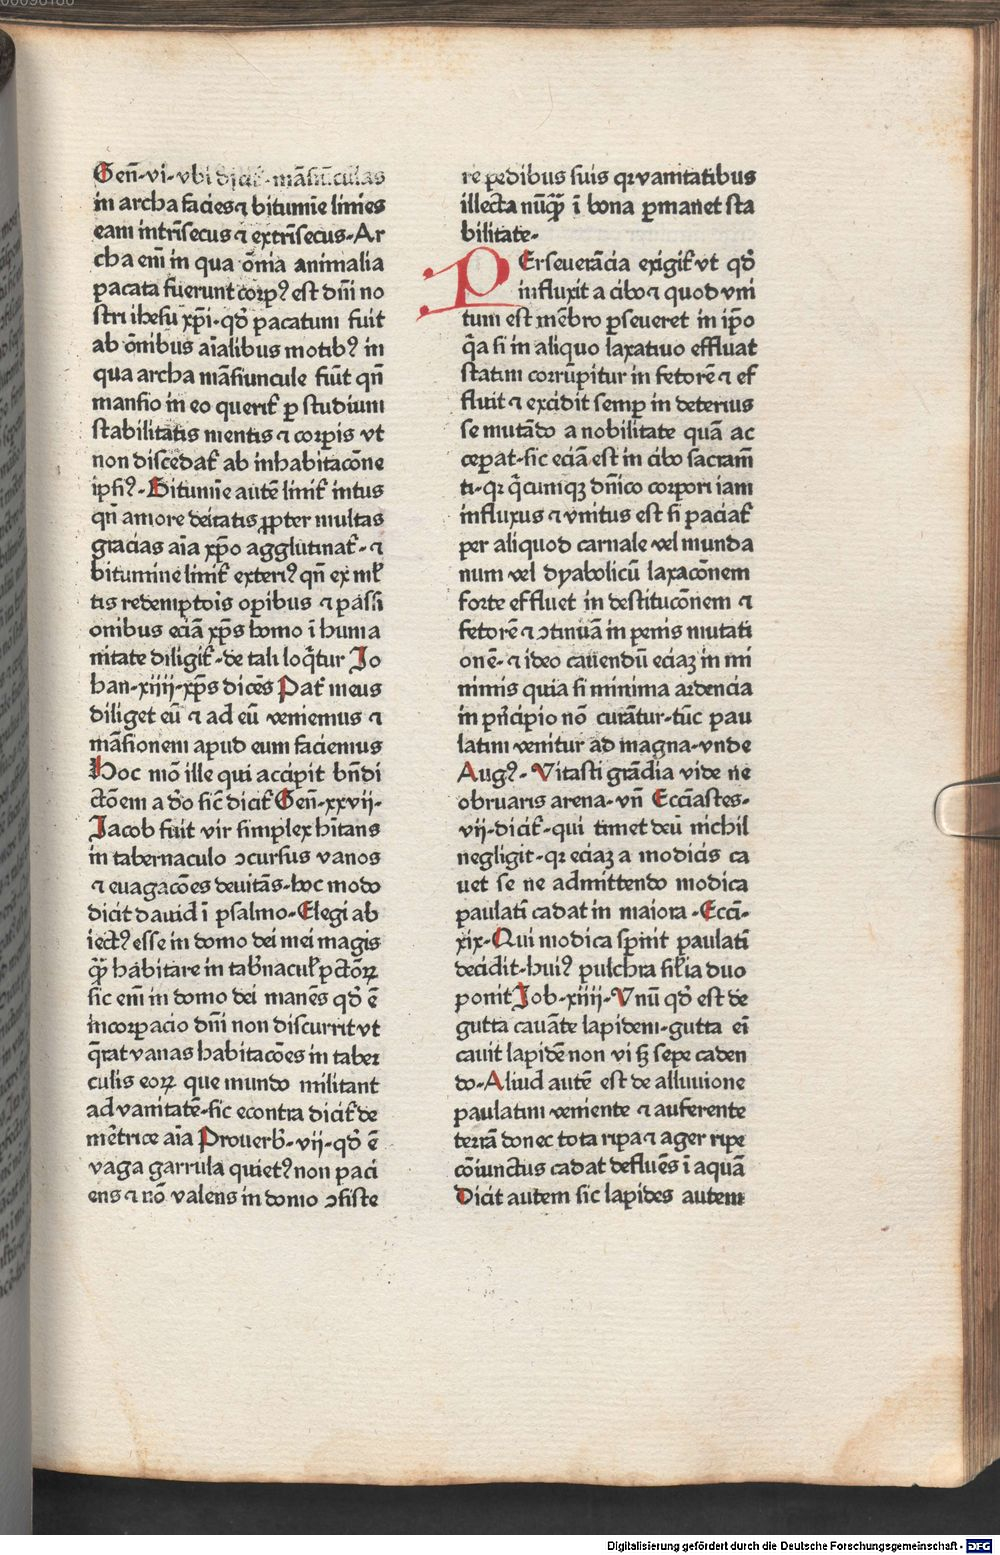 Geñ·vi·vbi dicit᷑·mãsiũculas
in archa facies ⁊ bitumĩe linies
eam intrĩsecus ⁊ extrĩsecus·Ar
cha em̃ in qua õnia animalia
pacata fuerunt corpꝰ est dñi no
stri ihesu xp̃i·qd̃ pacatum fuit
ab õnibus aĩalibus motibꝰ in
qua archa mãsiuncule fiũt qñ
mansio in eo querit᷑ ꝑ studium
stabilitatis mentis ⁊ corꝑis vt
non discedat᷑ ab inhabitacõne
ipsiꝰ·Bitumĩe autẽ linit᷑ intus
qñ amore deitatis ꝓpter multas
gracias aĩa xp̃o agglutinat᷑·⁊
bitumine linit᷑ exteriꝰ qñ ex ml̃
tis redemptoĩs oꝑibus ⁊ passi
onibus eciã xp̃s homo ĩ huma
nitate diligit᷑·de tali loq̃tur Jo
han·xiiij·xp̃s dicẽs Pat᷑ meus
diliget eũ ⁊ ad eũ veniemus ⁊
mãsionem apud eum faciemus
Hoc mõ ille qui accipit bñdi
ctõem a dõ sic̃ dicit᷑ Geñ·xxvij·
Jacob fuit vir simplex hĩtans
in tabernaculo ɔcursus vanos
⁊ euagacões deuitãs·hoc modo
dicit dauid ĩ psalmo·Elegi ab
iectꝰ esse in domo dei mei magis
qꝫ̃ habitare in tab̃nacul᷑ pctõꝝ
sic em̃ in domo dei manẽs qd̃ ẽ
incorꝑacio dñi non discurrit vt
q̃rat vanas habitacões in taber
culis eoꝝ que mundo militant
ad vanitatẽ·sic econtra dicit᷑ de
me᷑trice aĩa Prouerb̃·vij·qd̃ ẽ
vaga garrula quietꝰ non paci
ens ⁊ nõ valens in domo ɔsiste
re pedibus suis qꝛ vanitatibus
illecta nũqꝫ̃ ĩ bona ꝑmanet sta
bilitate·
PErseuerãcia exigit᷑ vt qd̃
influxit a cibo ⁊ quod vni
tum est mẽbro ꝑseueret in ip̃o
q̃a si in aliquo laxatiuo effluat
statim corrũpitur in fetorẽ ⁊ ef
fluit ⁊ excidit semꝑ in deterius
se mutãdo a nobilitate quã ac
ceꝑat·sic eciã est in cibo sacram̃
ti·qꝛ q̃cunqꝫ dñico corpori iam
influxus ⁊ vnitus est si paciat᷑
per aliquod carnale vel munda
num vel dyabolicũ laxacõnem
forte effluet in destitucõnem ⁊
fetorẽ ⁊ ɔtinuã in penis mutati
onẽ·⁊ ideo cauendũ eciaꝫ in mi
nimis quia si minima ardencia
in prĩcipio nõ curãtur·tũc pau
latim venitur ad magna·vnde
Augꝰ·Vitasti grãdia vide ne
obruaris arena·vñ Eccl̃iastes·
vij·dicit᷑·qui timet deũ nichil
negligit·qꝛ eciaꝫ a modicis ca
uet se ne admittendo modica
paulatĩ cadat in maiora·Eccĩ·
xix·Qui modica spernit paulatĩ
decidit·huiꝰ pulchra sil̃ia duo
ponit Job·xiiij·Vnũ qd̃ est de
gutta cauãte lapidem·gutta eĩ
cauit lapidẽ non vi sꝫ sepe caden
do·Aliud autẽ est de alluuione
paulatim veniente ⁊ auferente
terrã donec tota ripa ⁊ ager ripe
cõiunctus cadat defluẽs ĩ aquã
Dicit autem sic lapides autem
Digitalisierung gefördert durch die Deutsche Forschungsgemeinschaft - DFG